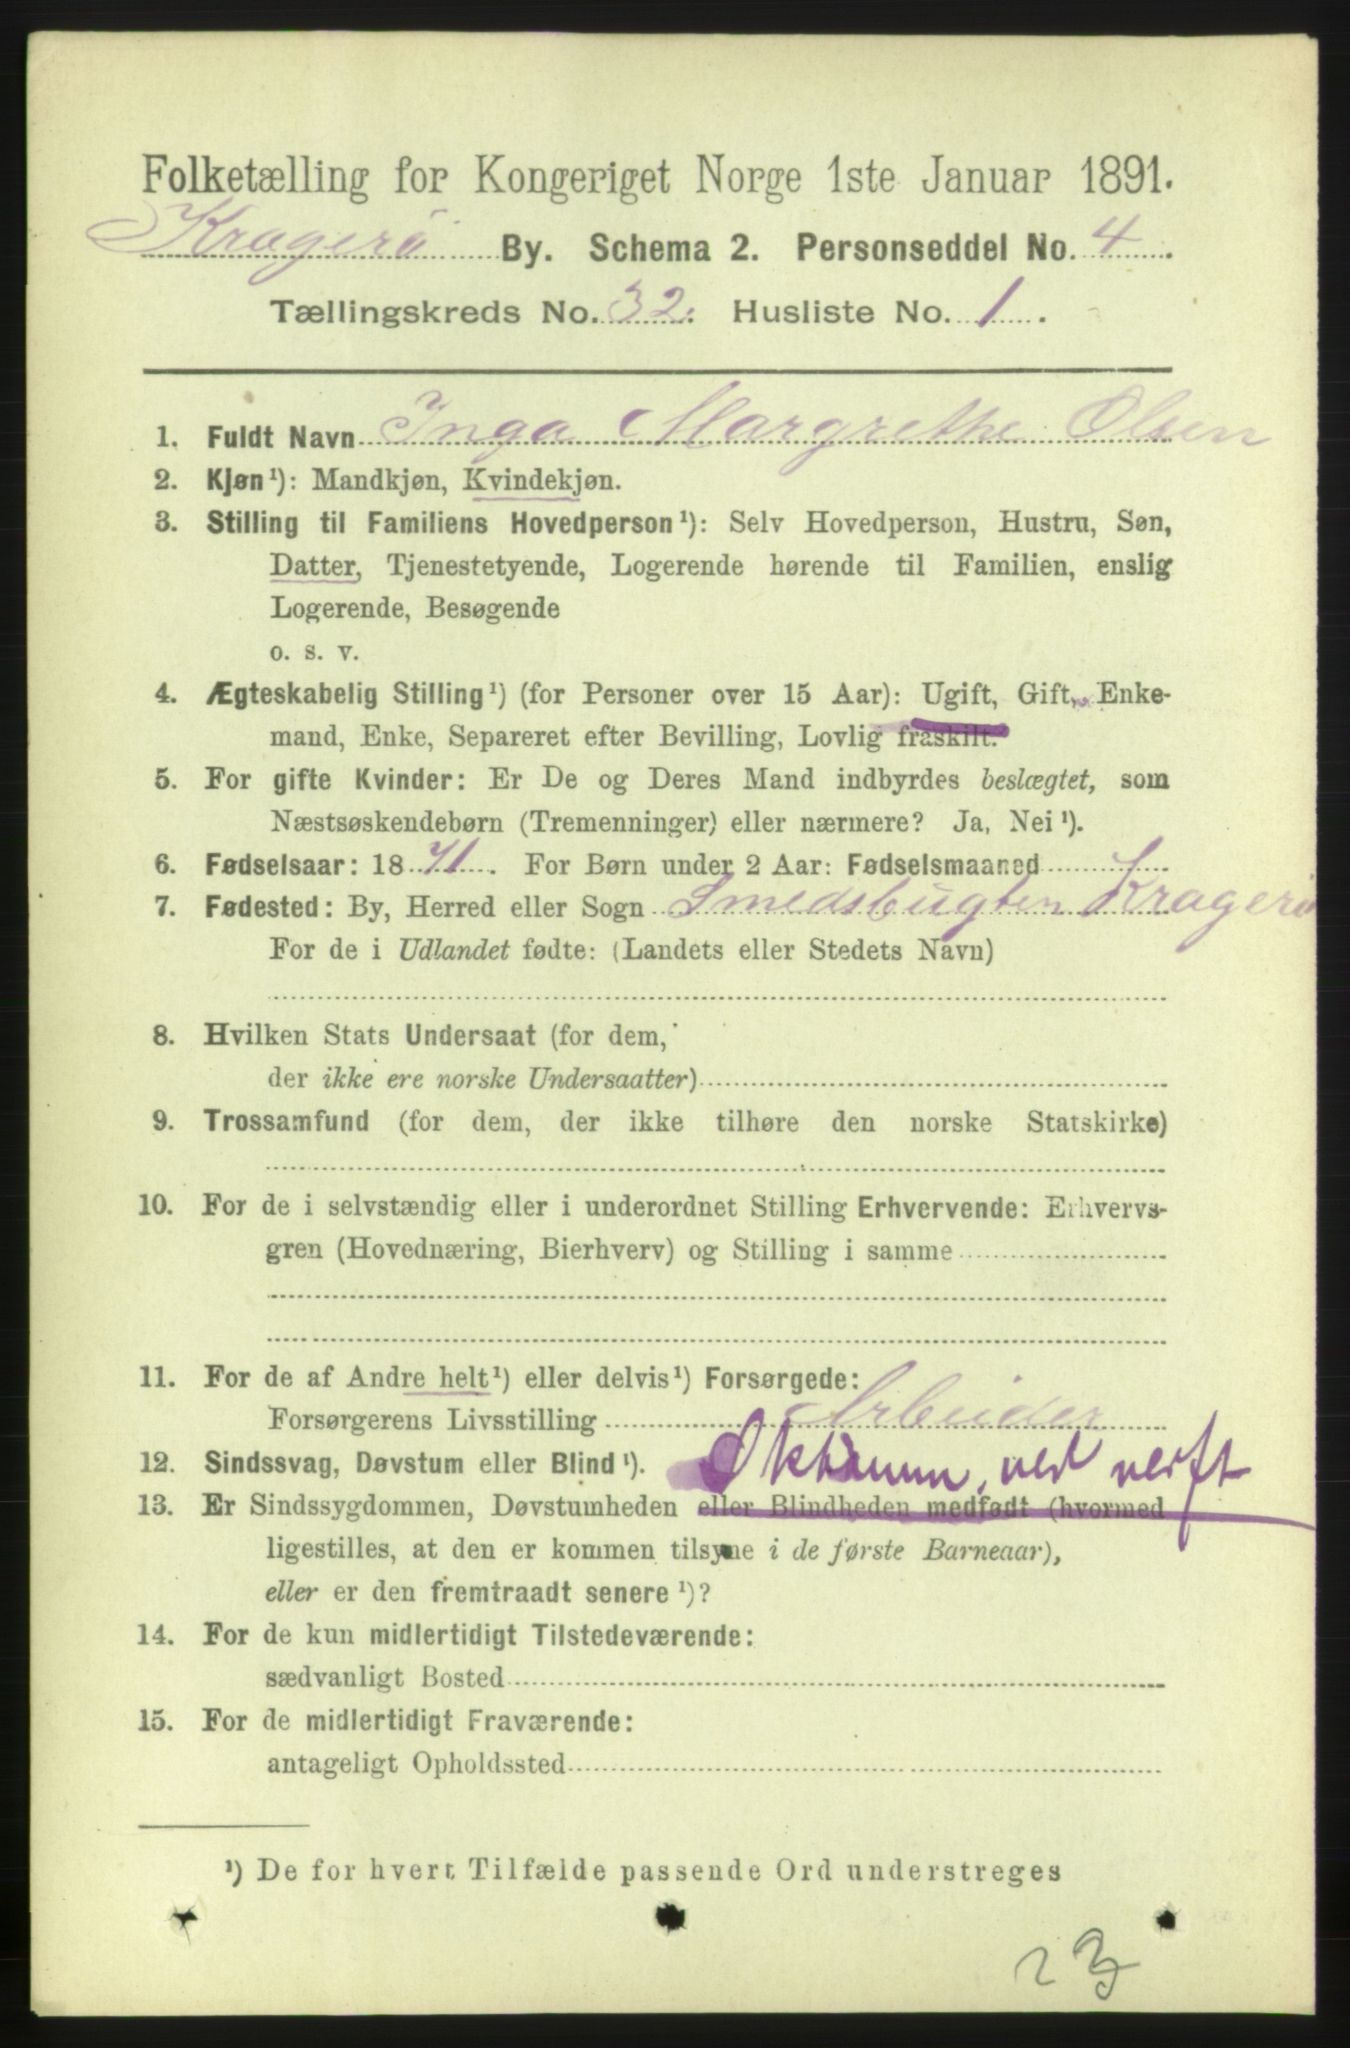 Folketælling for Kongeriget Norge 1ste Januar 1891.
Kragerö By. Schema 2. Personseddel No. 4.
Tællingskreds No. 32. Husliste No. 1.
1. Fuldt Navn Inga Margrethe Olsen
2. Kjøn¹): Mandkjøn, Kvindekjøn.
3. Stilling til Familiens Hovedperson¹): Selv Hovedperson, Hustru, Søn,
Datter, Tjenestetyende, Logerende hørende til Familien, enslig
Logerende, Besøgende
o. s. v.
4. Ægteskabelig Stilling¹) (for Personer over 15 Aar): Ugift, Gift, Enke-
mand, Enke, Separeret efter Bevilling, Lovlig fraskilt.
5. For gifte Kvinder: Er De og Deres Mand indbyrdes beslægtet, som
Næstsøskendebørn (Tremenninger) eller nærmere? Ja, Nei¹).
6. Fødselsaar: 1871. For Børn under 2 Aar: Fødselsmaaned
7. Fødested: By, Herred eller Sogn Smedsbugten Kragerö
For de i Udlandet fødte: (Landets eller Stedets Navn)
8. Hvilken Stats Undersaat (for dem,
der ikke ere norske Undersaatter)
9. Trossamfund (for dem, der ikke tilhøre den norske Statskirke)
10. For de i selvstændig eller i underordnet Stilling Erhvervende: Erhvervs-
gren (Hovednæring, Bierhverv) og Stilling i samme
11. For de af Andre helt¹) eller delvis¹) Forsørgede:
Forsørgerens Livsstilling Arbeider
12. Sindssvag, Døvstum eller Blind¹). ved verft
13. Er Sindssygdommen, Døvstumheden eller Blindheden medfødt (hvormed
ligestilles, at den er kommen tilsyne i de første Barneaar),
eller er den fremtraadt senere¹)?
14. For de kun midlertidigt Tilstedeværende:
sædvanligt Bosted
15. For de midlertidigt Fraværende:
antageligt Opholdssted
¹) De for hvert Tilfælde passende Ord understreges